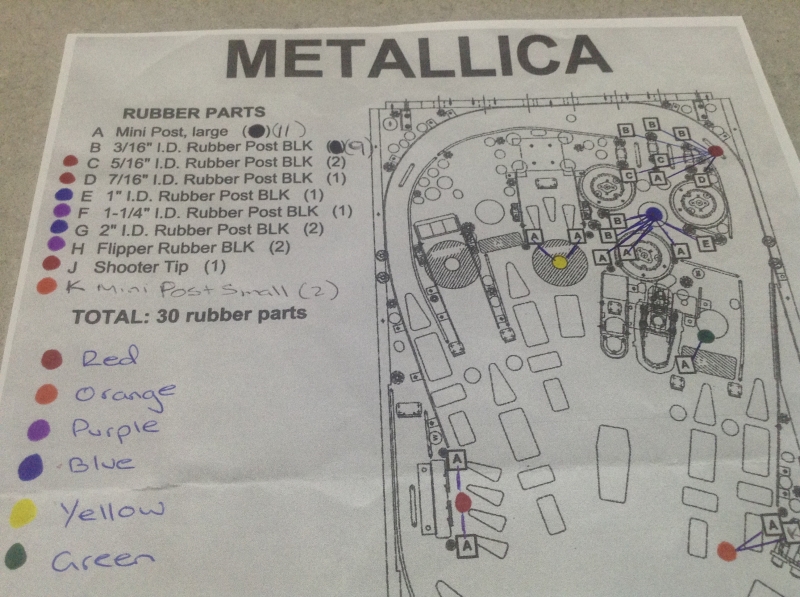 METALLICA
RUBBER PARTS
A Mini Post, large (11)
B 3/16" I.D. Rubber Post BLK (9)
C 5/16" I.D. Rubber Post BLK (2)
D 7/16" I.D. Rubber Post BLK (1)
E 1" I.D. Rubber Post BLK (1)
F 1-1/4" I.D. Rubber Post BLK (1)
G 2" I.D. Rubber Post BLK (2)
H Flipper Rubber BLK (2)
J Shooter Tip (1)
K Mini Post Small (2)
TOTAL: 30 rubber parts
Red
Orange
Purple
Blue
Yellow
Green
B
B
B
C
C
A
D
A
A
B
B
A
A
A
E
A
A
A
A
K